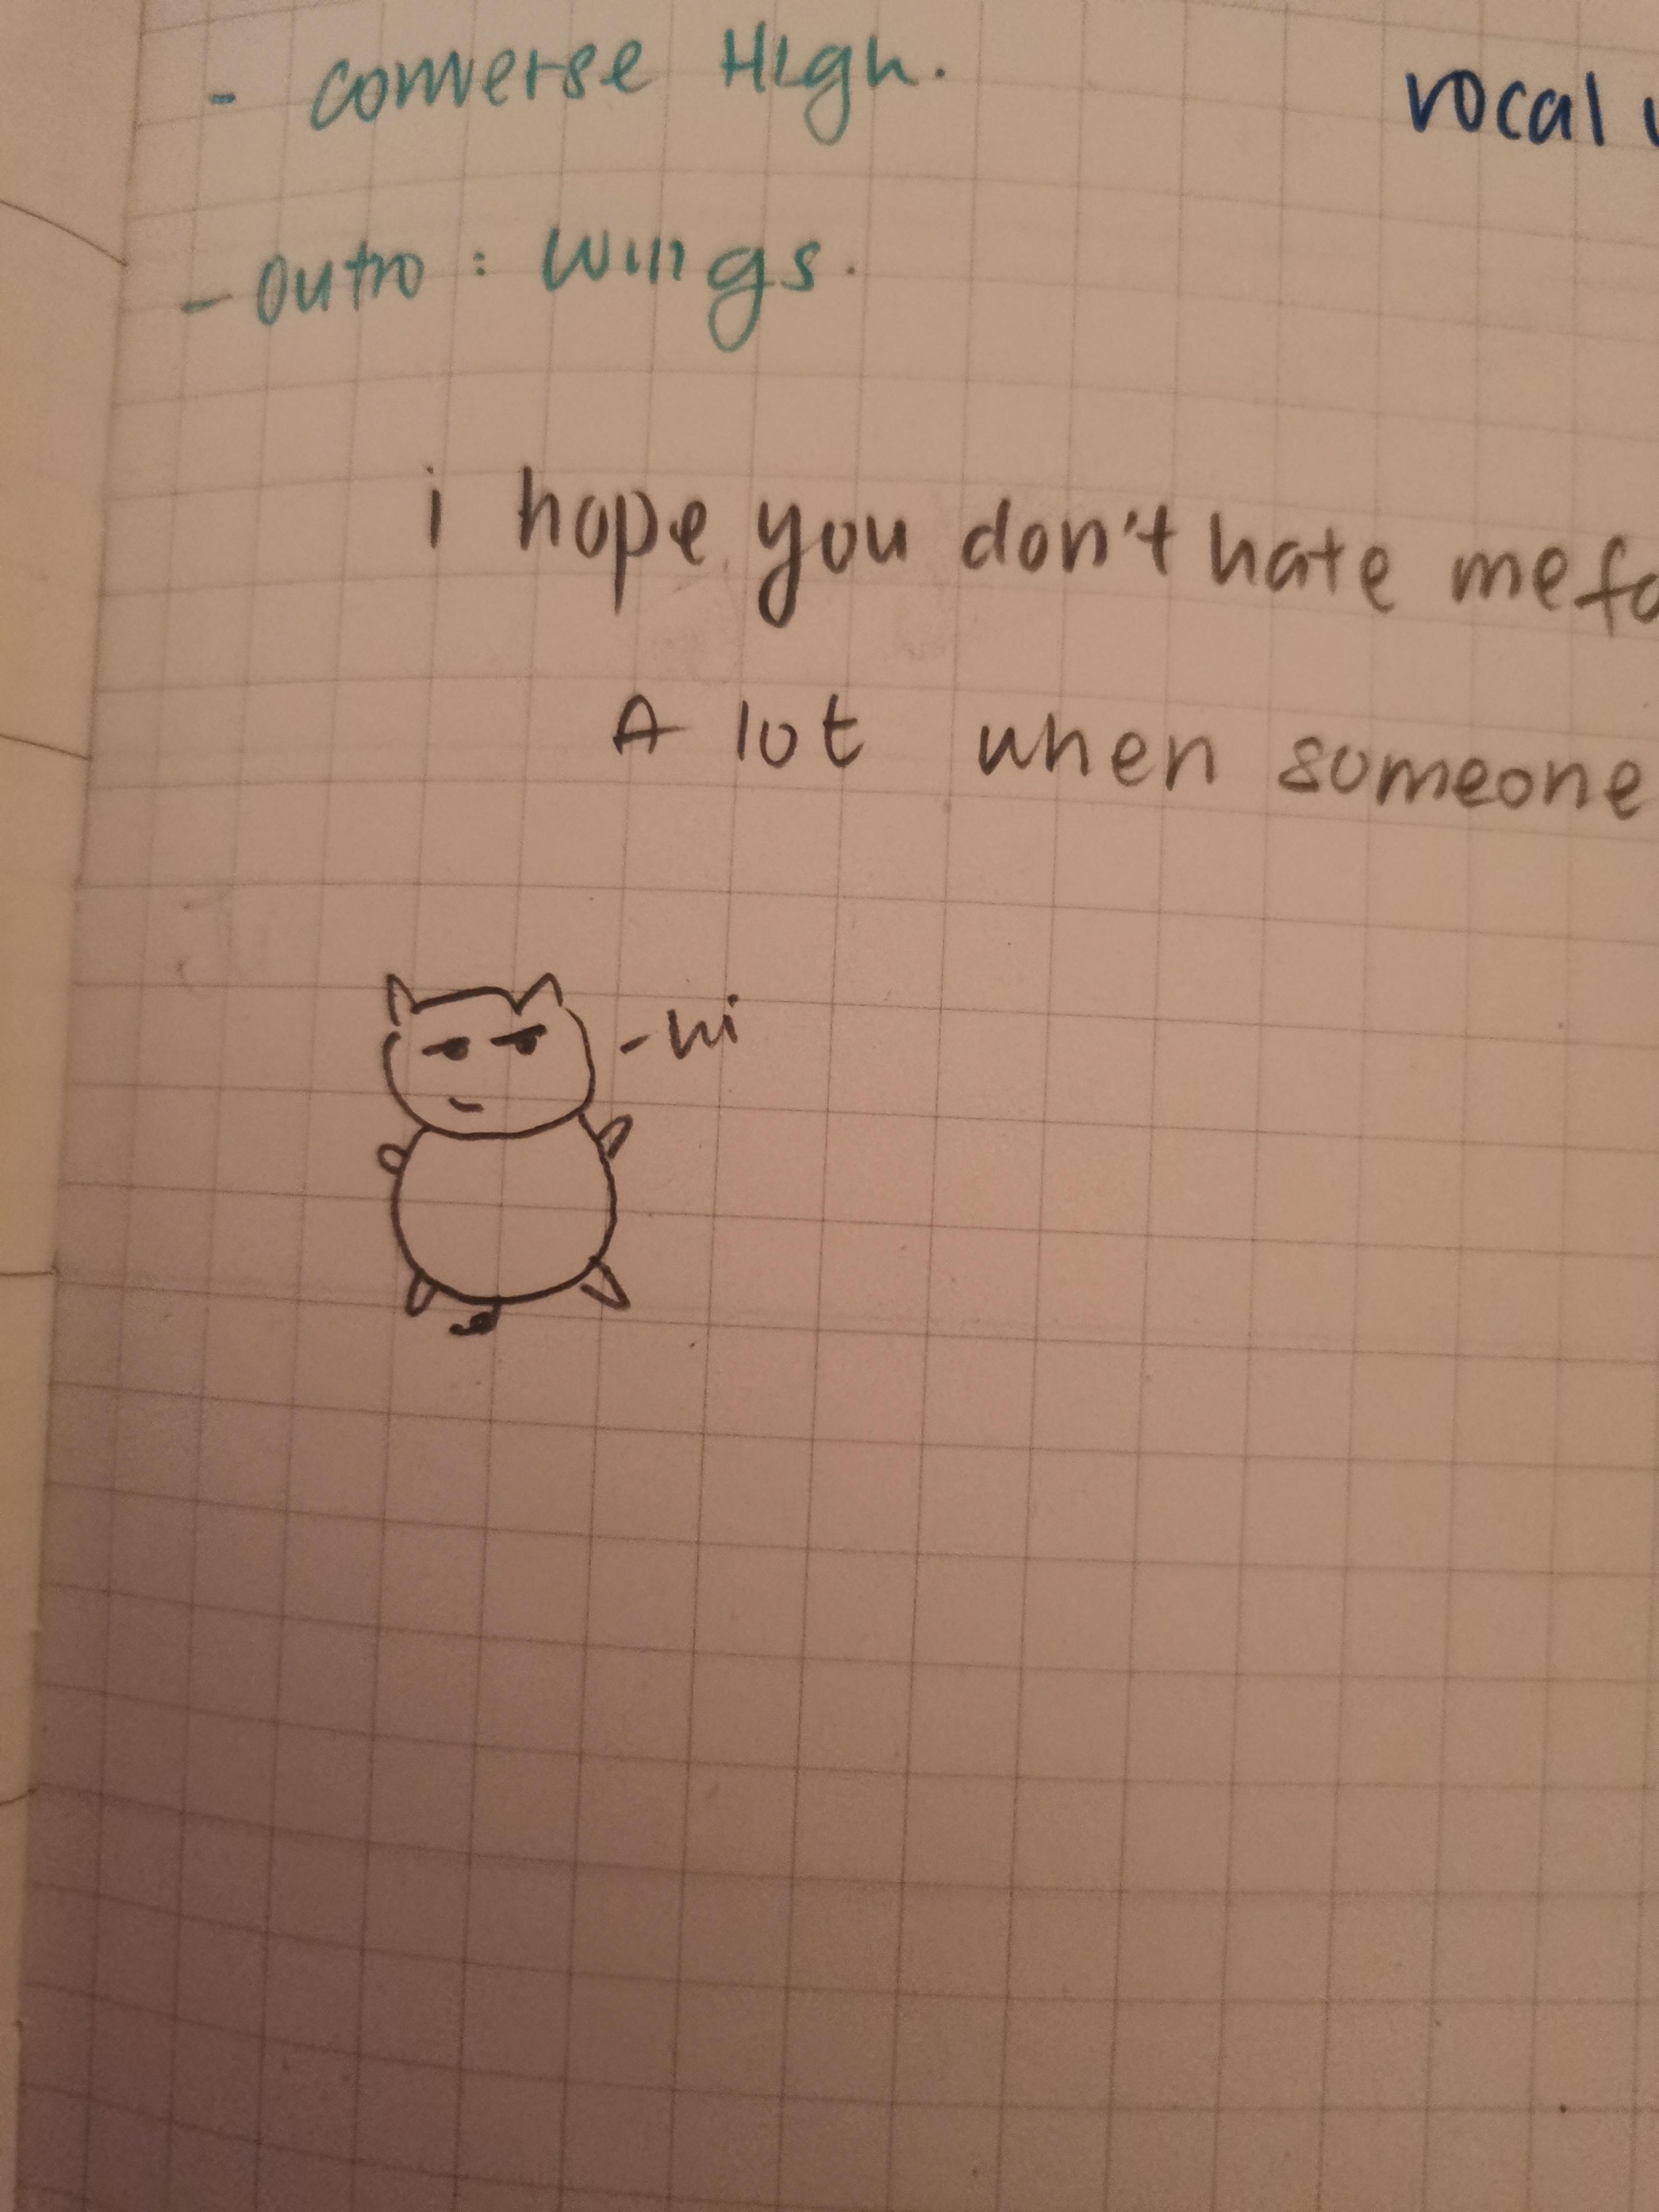 - Converse High.
vocal
- Outro : Wings.
i hope you don't hate me
A lot when someone
- hi